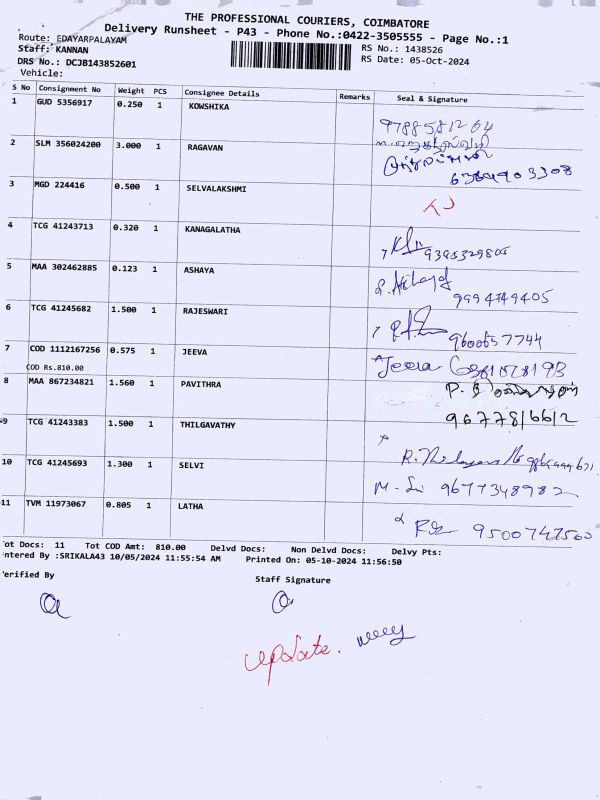 THE PROFESSIONAL COURIERS, COIMBATORE
Delivery Runsheet - P43 - Phone No.:0422-3505555 - Page No.:1
Route: EDAYARPALAYAM
RS No.: 1438526
Staff: KANNAN
RS Date: 05-Oct-2024
DRS No.: DCJB143852601
Vehicle:
S No Consignment No Weight PCS Consignee Details Remarks Seal & Signature
1 GUD 5356917 0.250 1 KOWSHIKA
9788581264
2 SLM 356024200 3.000 1 RAGAVAN
3 MGD 224416 0.500 1 SELVALAKSHMI
4 TCG 41243713 0.320 1 KANAGALATHA
5 MAA 302462885 0.123 1 ASHAYA
9994749405
6 TCG 41245682 1.500 1 RAJESWARI
9600657744
7 COD 1112167256 0.575 1 JEEVA
Jeeva
COD Rs.810.00
8 MAA 867234821 1.560 1 PAVITHRA
9677816612
9 TCG 41243383 1.500 1 THILGAVATHY
10 TCG 41245693 1.300 1 SELVI
9677348982
11 TVM 11973067 0.805 1 LATHA
9500747560
ot Docs: 11 Tot COD Amt: 810.00 Delvd Docs: Non Delvd Docs: Delvy Pts:
ntered By :SRIKALA43 10/05/2024 11:55:54 AM Printed On: 05-10-2024 11:56:50
erified By
Staff Signature
update.